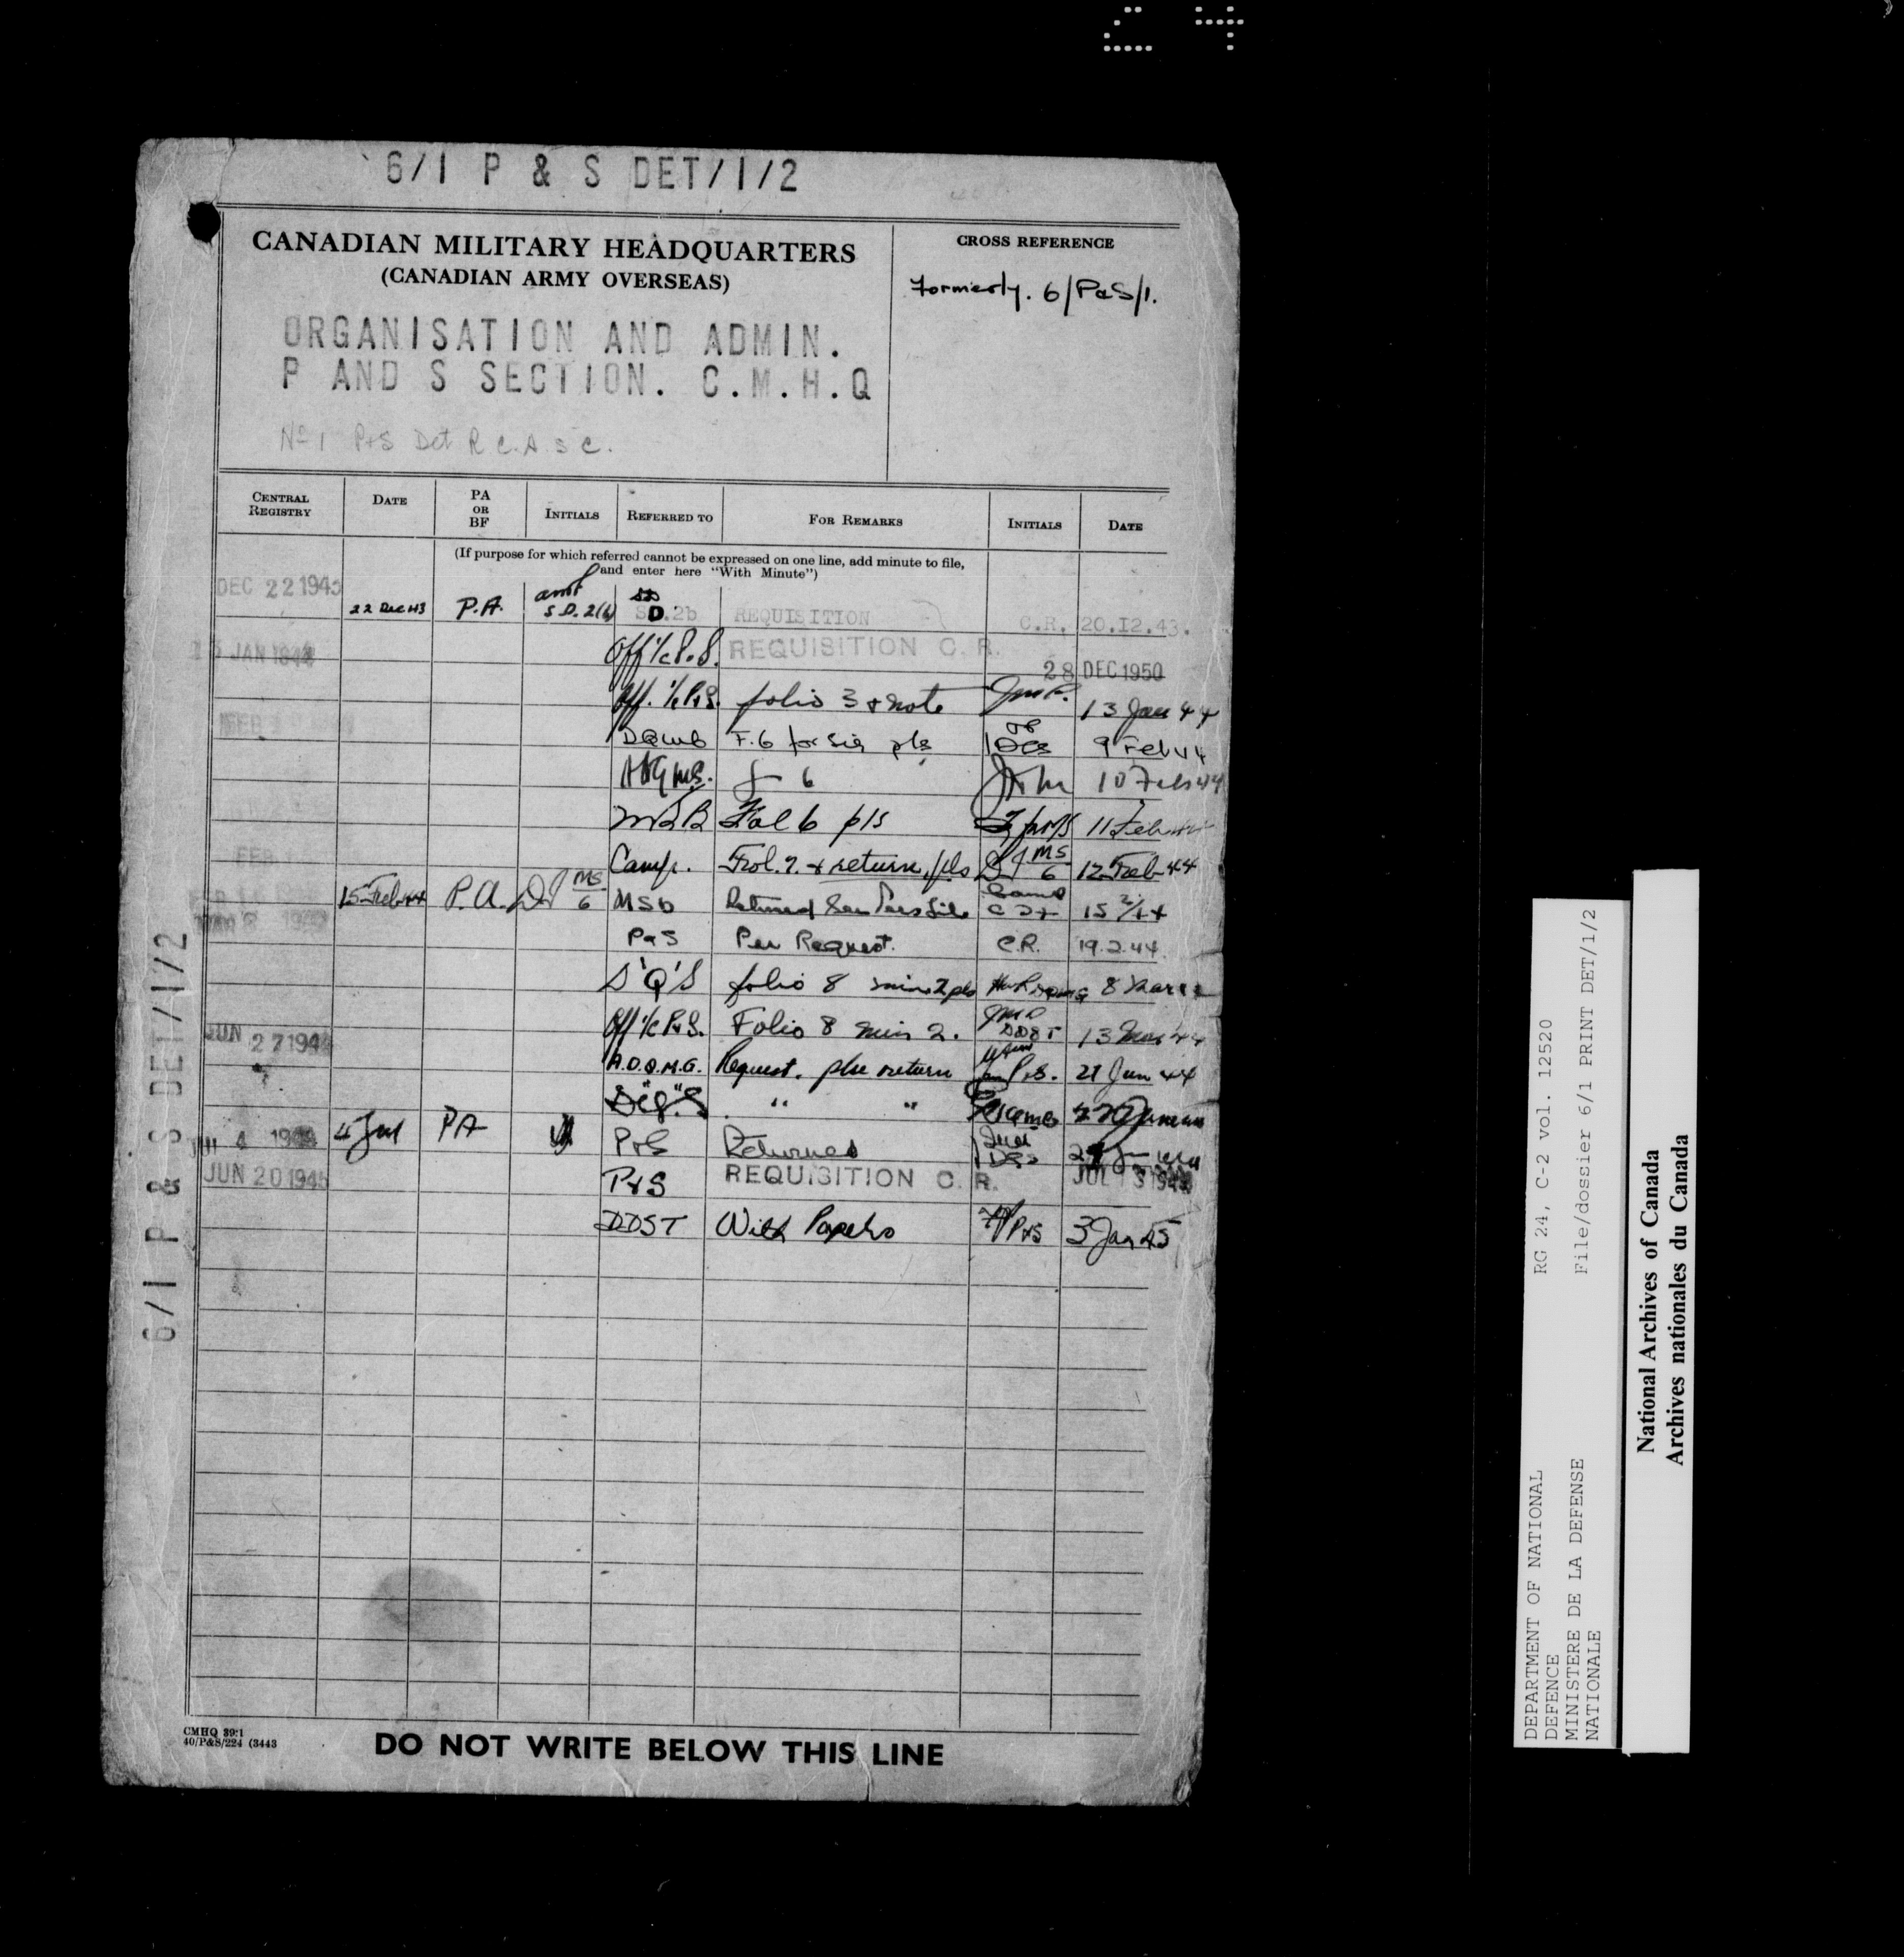 C 4
6/1 P & S DET/1/2
CANADIAN MILITARY HEADQUARTERS
(CANADIAN ARMY OVERSEAS)
CROSS REFERENCE
Formerly. 6/P&S/1.
ORGANISATION AND ADMIN.
P AND S SECTION. C.M.H.Q
No 1 P+S Det R.C.A.S.C.
CENTRAL REGISTRY DATE PA OR BF INITIALS REFERRED TO FOR REMARKS INITIALS DATE
(If purpose for which referred cannot be expressed on one line, add minute to file,
and enter here "With Minute")
DEC 22 1943
22 Dec 43 P.A. S.D. 2(b) D. REQUISITION C.R. 20.12.43.
JAN 1944 Off i/c P.S. REQUISITION C. R. 28 DEC 1950
Off. i/c P+S. folio 3 & note 13 Jan 44
F.6 for sig pls 9 Feb 44
f 6 10 Feb 44
Fol 6 pls 11 Feb
Camp. Fol. 7. + return pls MS 6 12 Feb 44
15 Feb 44 P.A. MS 6 MSD Returned 15 2/44
P&S Per Request. C.R. 19.2.44.
D'Q'S folio 8 min 2 pls 8 Mar
Off i/c P&S. Folio 8 min 2. DDST 13 Mar 44
JUN 27 194
A.D.Q.M.G. Request. plse return P+S. 21 Jun 44
" "
4 Jul PA P+S Returned
JUN 20 1945 P+S REQUISITION C. R. JUL 3 194
DDST With Papers P+S 3 Jan 45
6/1 P & S DET/1/2
CMHQ 39:1
40/P&S/224 (3443
DO NOT WRITE BELOW THIS LINE
DEPARTMENT OF NATIONAL
DEFENCE
MINISTERE DE LA DEFENSE
NATIONALE
RG 24, C-2 vol. 12520
File/dossier 6/1 PRINT DET/1/2
National Archives of Canada
Archives nationales du Canada